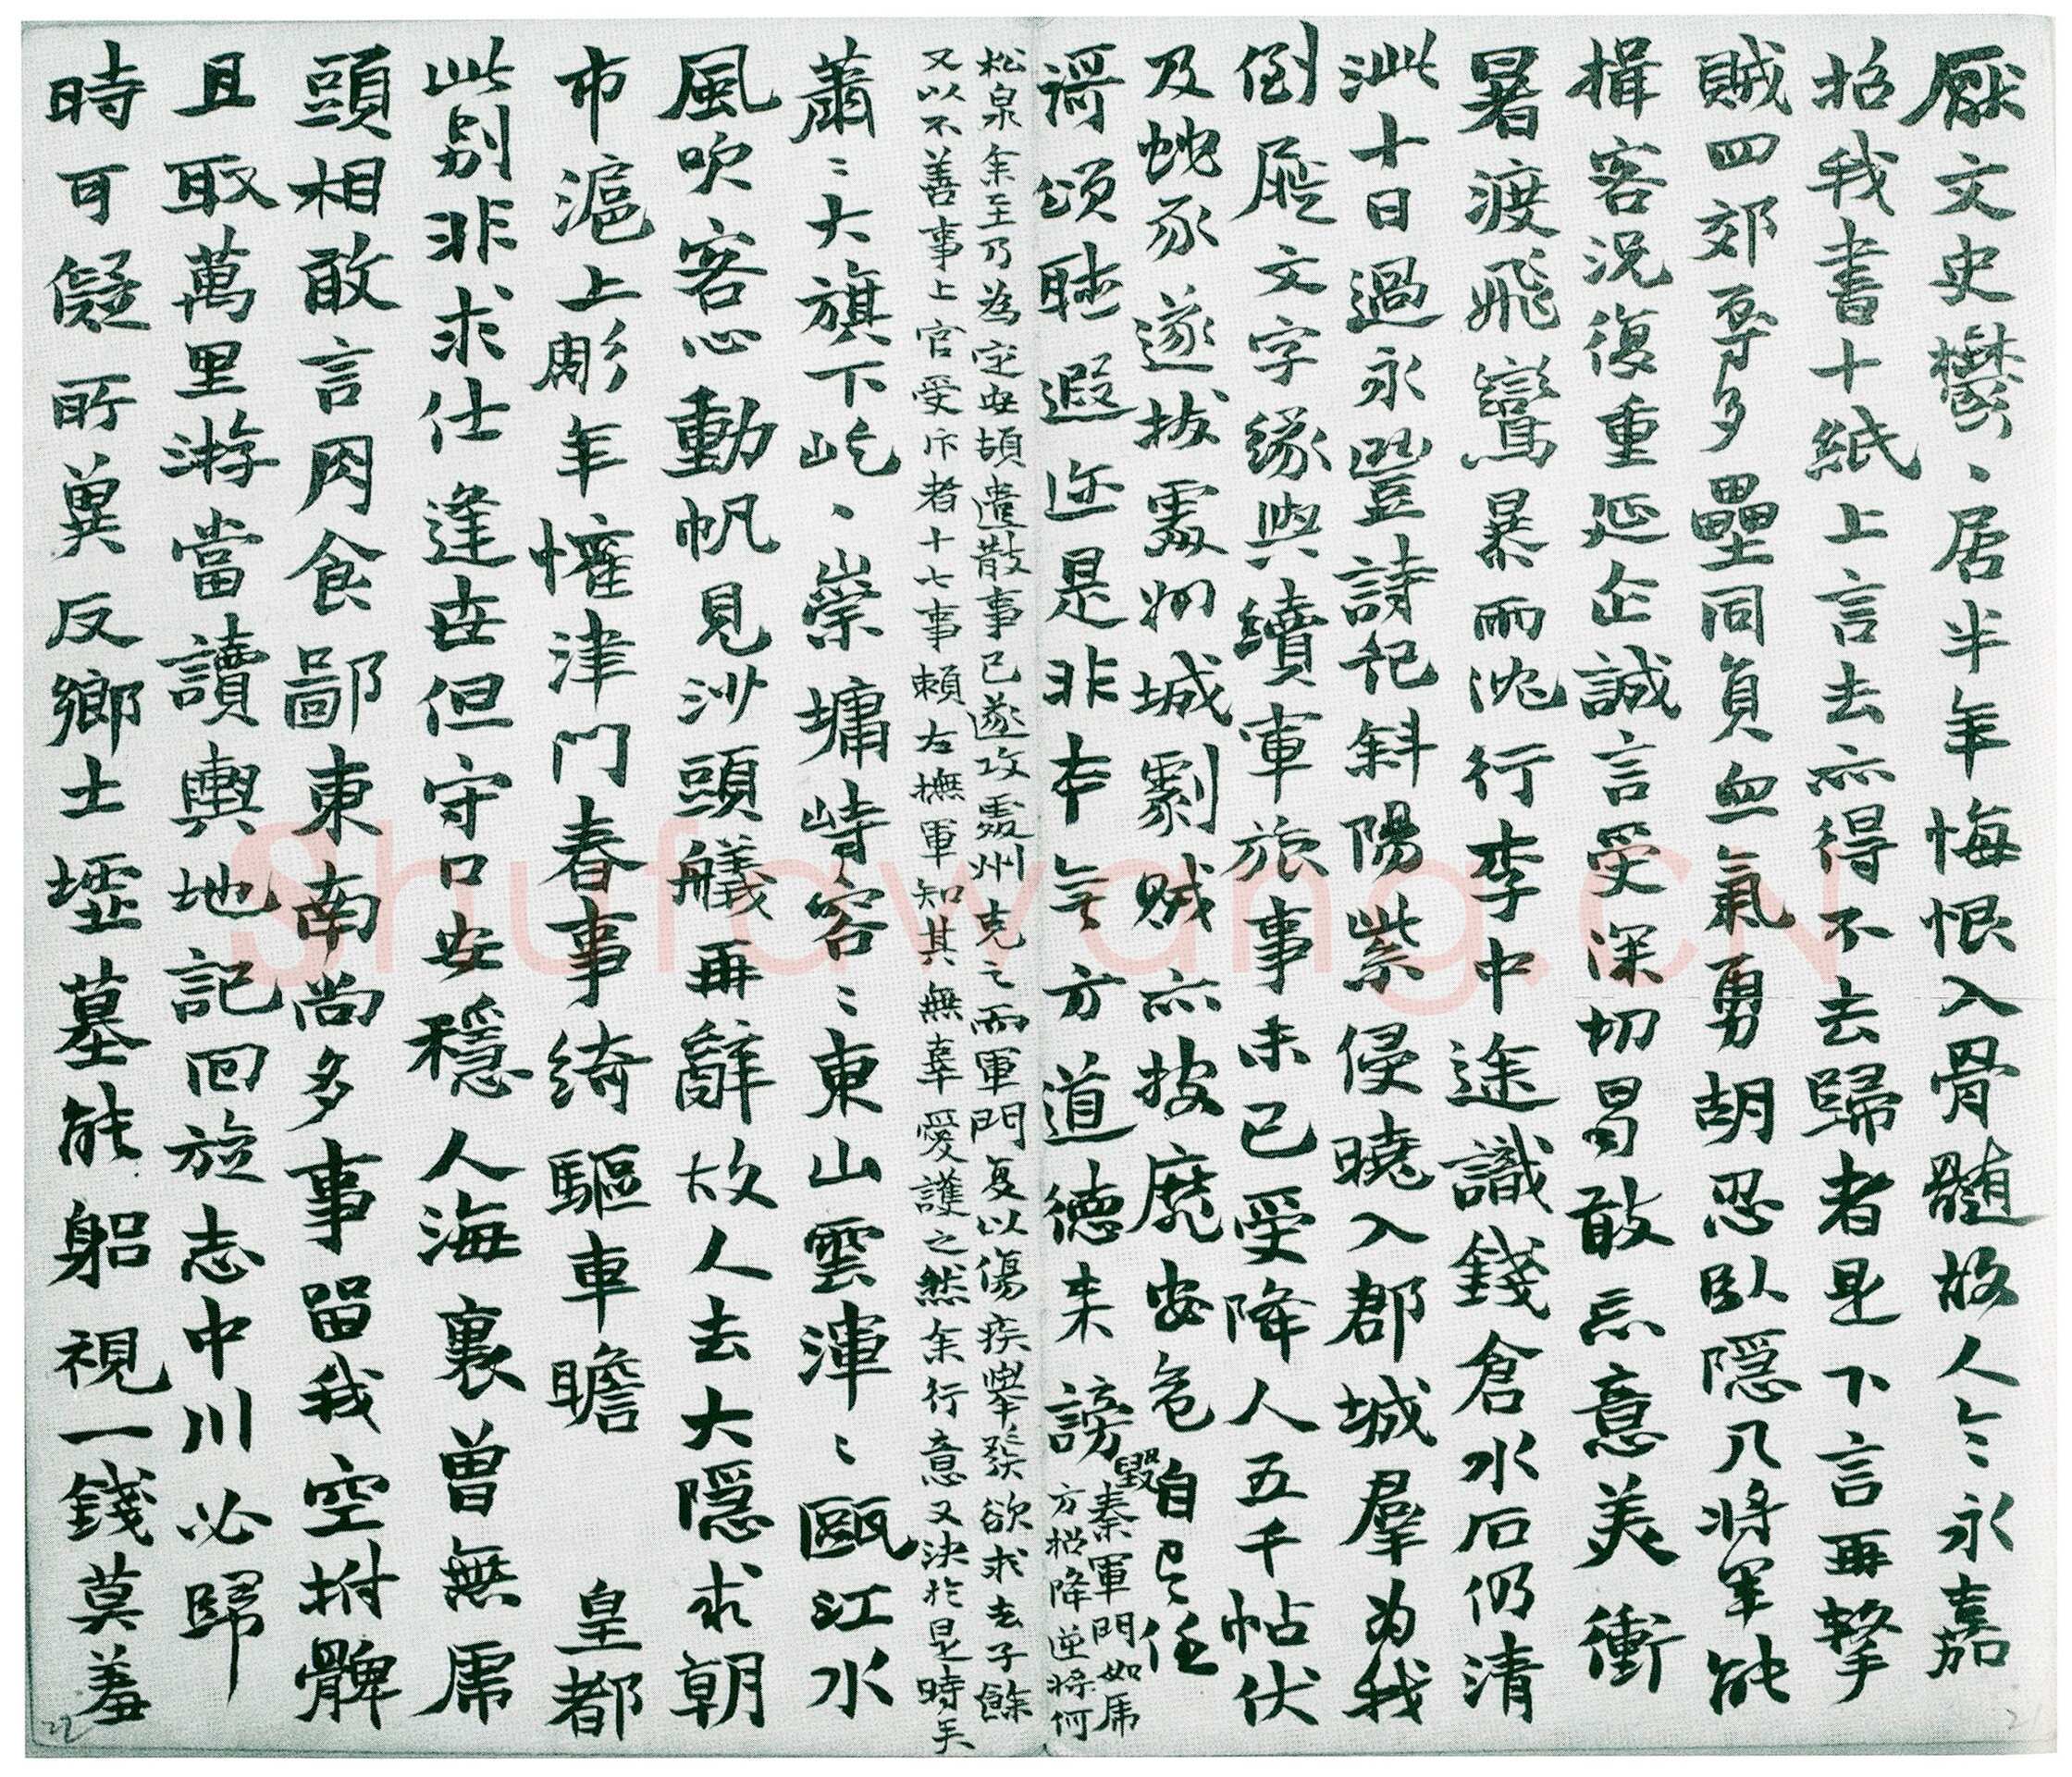 厭文史鬱、居半年悔恨入骨髓故人々永嘉
招我書十紙上言去亦得不去歸者是下言再擊
賊四郊辱多壘同負血氣勇胡忍臥隱几將軍能
揖客況復重延企誠言受深切曷敢忘意美衝
暑渡飛鸞暴雨沈行李中途識錢倉水石仍清
泚十日過永豐詩記斜陽紫侵曉入郡城羣為我
倒屣文字緣與續軍旅事未已受降人五千帖伏
及蛇豕遂拔處州城劇賊亦披靡安危自己任
謌頌聴遐迩是非本無方道德来謗毀
秦軍門如虎
方招降逆將何
松泉余至乃為定安頓遣散事已遂攻處州克之而軍門复以傷疾舉發欲求去子餘
又以不善事上官受斥者十七事賴左撫軍知其無辜愛護之然余行意又決於是時矣
蕭ミ大旗下屹、崇墉峙容ミ東山雲渾ミ甌江水
風吹客心動帆見沙頭艤再辭故人去大隱求朝
市滬上彫年懽津門春事綺驅車瞻 皇都
此别非求仕逢世但守口安穩人海裏曾無席
頭相敢言肉食鄙東南尚多事留我空拊髀
且取萬里游當讀輿地記回旋志中川必歸
時可儗所冀反鄉士墟墓能躬視一錢莫羞
22
21
Shufawang.CN